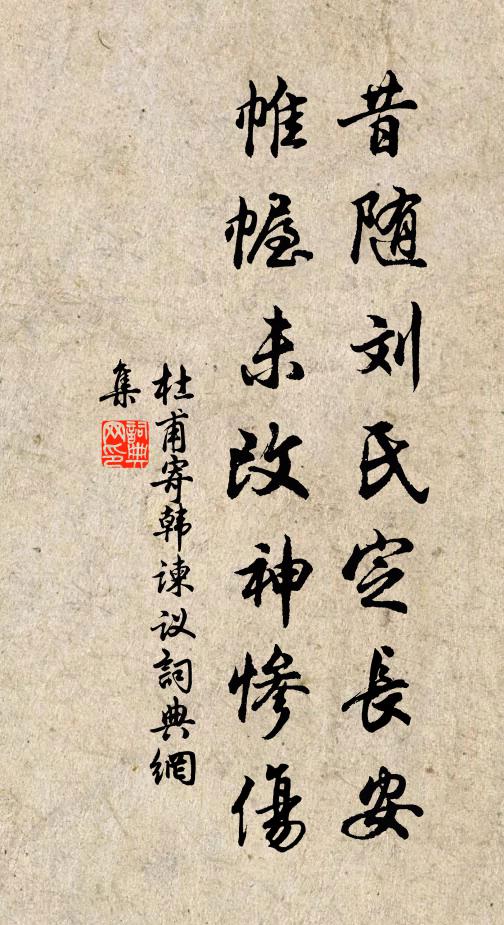 昔随刘氏定長安
帷幄未改神惨傷
杜甫寄韩谏议詞典網
集
詞典
网印